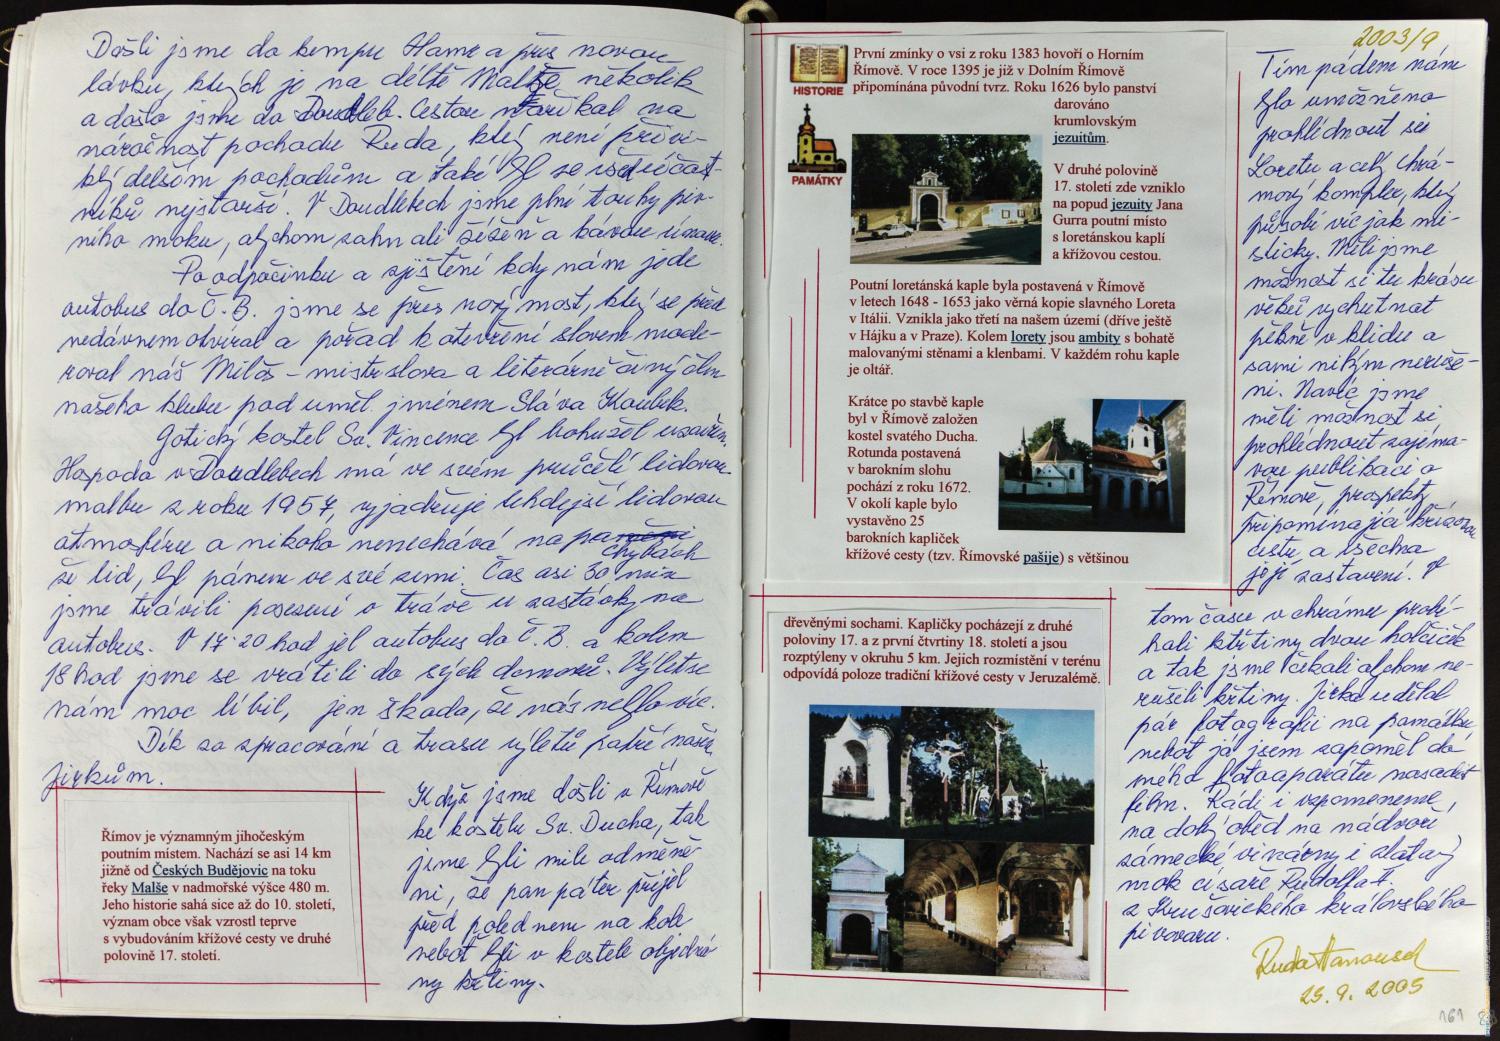 Došli jsme do kempu Hamr a přes novou
lávku, kterých je na délce Malše několik
a došlo jsme do Doudleb. Cestou naříkal na
náročnost pochodu Ruda, který není přivy-
klý delším pochodům a také byl se všech účast-
níků nejstarší. V Doudlebech jsme plní touhy piv-
ního moku, abychom zahnali žížeň a kávou únavu.
Po odpočinku a zjištění kdy nám jede
autobus do Č.B. jsme se přes nový most, který se před
nedávnem otvíral a pořad k otevření slovem mode-
roval náš Miloš – mistr slova a literárně činný člen
našeho klubu pod uměl. jménem Sláva Koubek.
Gotický kostel Sv. Vincence byl bohužel uzavřen.
Hospoda v Doudlebech má ve svém průčelí lidovou
malbu z roku 1957, vyjadřuje tehdejší lidovou
atmosféru a nikoho nenechává na
chybách
že lid, byl pánem ve své zemi. Čas asi 30 min
jsme trávili posezení v trávě u zastávky na
autobus. V 17.20 hod jel autobus do Č.B. a kolem
18 hod jsme se vrátili do svých domovů. Výlet se
nám moc líbil, jen škoda, že nás nebylo víc.
Dík za zpracování a trasu výletů patří našim
Jirkům.
Římov je významným jihočeským
poutním místem. Nachází se asi 14 km
jižně od Českých Budějovic na toku
řeky Malše v nadmořské výšce 480 m.
Jeho historie sahá sice až do 10. století,
význam obce však vzrostl teprve
s vybudováním křížové cesty ve druhé
polovině 17. století.
Když jsme došli v Římově
ke kostelu Sv. Ducha, tak
jsme byli mile odměně-
ni, že pan páter přijel
před polednem na kole
neboť byli v kostele objedná-
ny křtiny.
2003/9
HISTORIE
PAMÁTKY
První zmínky o vsi z roku 1383 hovoří o Horním
Římově. V roce 1395 je již v Dolním Římově
připomínána původní tvrz. Roku 1626 bylo panství
darováno
krumlovským
jezuitům.
V druhé polovině
17. století zde vzniklo
na popud jezuity Jana
Gurra poutní místo
s loretánskou kaplí
a křížovou cestou.
Poutní loretánská kaple byla postavená v Římově
v letech 1648 - 1653 jako věrná kopie slavného Loreta
v Itálii. Vznikla jako třetí na našem území (dříve ještě
v Hájku a v Praze). Kolem lorety jsou ambity s bohatě
malovanými stěnami a klenbami. V každém rohu kaple
je oltář.
Krátce po stavbě kaple
byl v Římově založen
kostel svatého Ducha.
Rotunda postavená
v barokním slohu
pochází z roku 1672.
V okolí kaple bylo
vystavěno 25
barokních kapliček
křížové cesty (tzv. Římovské pašije) s většinou
dřevěnými sochami. Kapličky pocházejí z druhé
poloviny 17. a z první čtvrtiny 18. století a jsou
rozptýleny v okruhu 5 km. Jejich rozmístění v terénu
odpovídá poloze tradiční křížové cesty v Jeruzalémě.
Tím pádem nám
bylo umožněno
prohlédnout si
Loretu a celý chrá-
mový komplex, který
působí víc jak mi-
sticky. Měli jsme
možnost si tu krásu
věků vychutnat
pěkně v klidu a
sami nikým neruše-
ni. Navíc jsme
měli možnost si
prohlédnout zajíma-
vou publikaci o
Římově, prospekty
připomínající křížovou
cestu a všechna
její zastavení. V
tom času v chrámu probí-
hali křtiny dvou holčiček
a tak jsme čekali abychom ne-
rušili křtiny. Jirka udělal
pár fotografií na památku,
neboť já jsem zapoměl do
mého fotoaparátu nasadit
film. Rádi i vzpomeneme,
na dobrý oběd na nádvoří
zámecké vinárny i zlatavý
mok císaře Rudolfa II.
z Krušovického královského
pivovaru.
Ruda Hanousek
25.9.2005
161